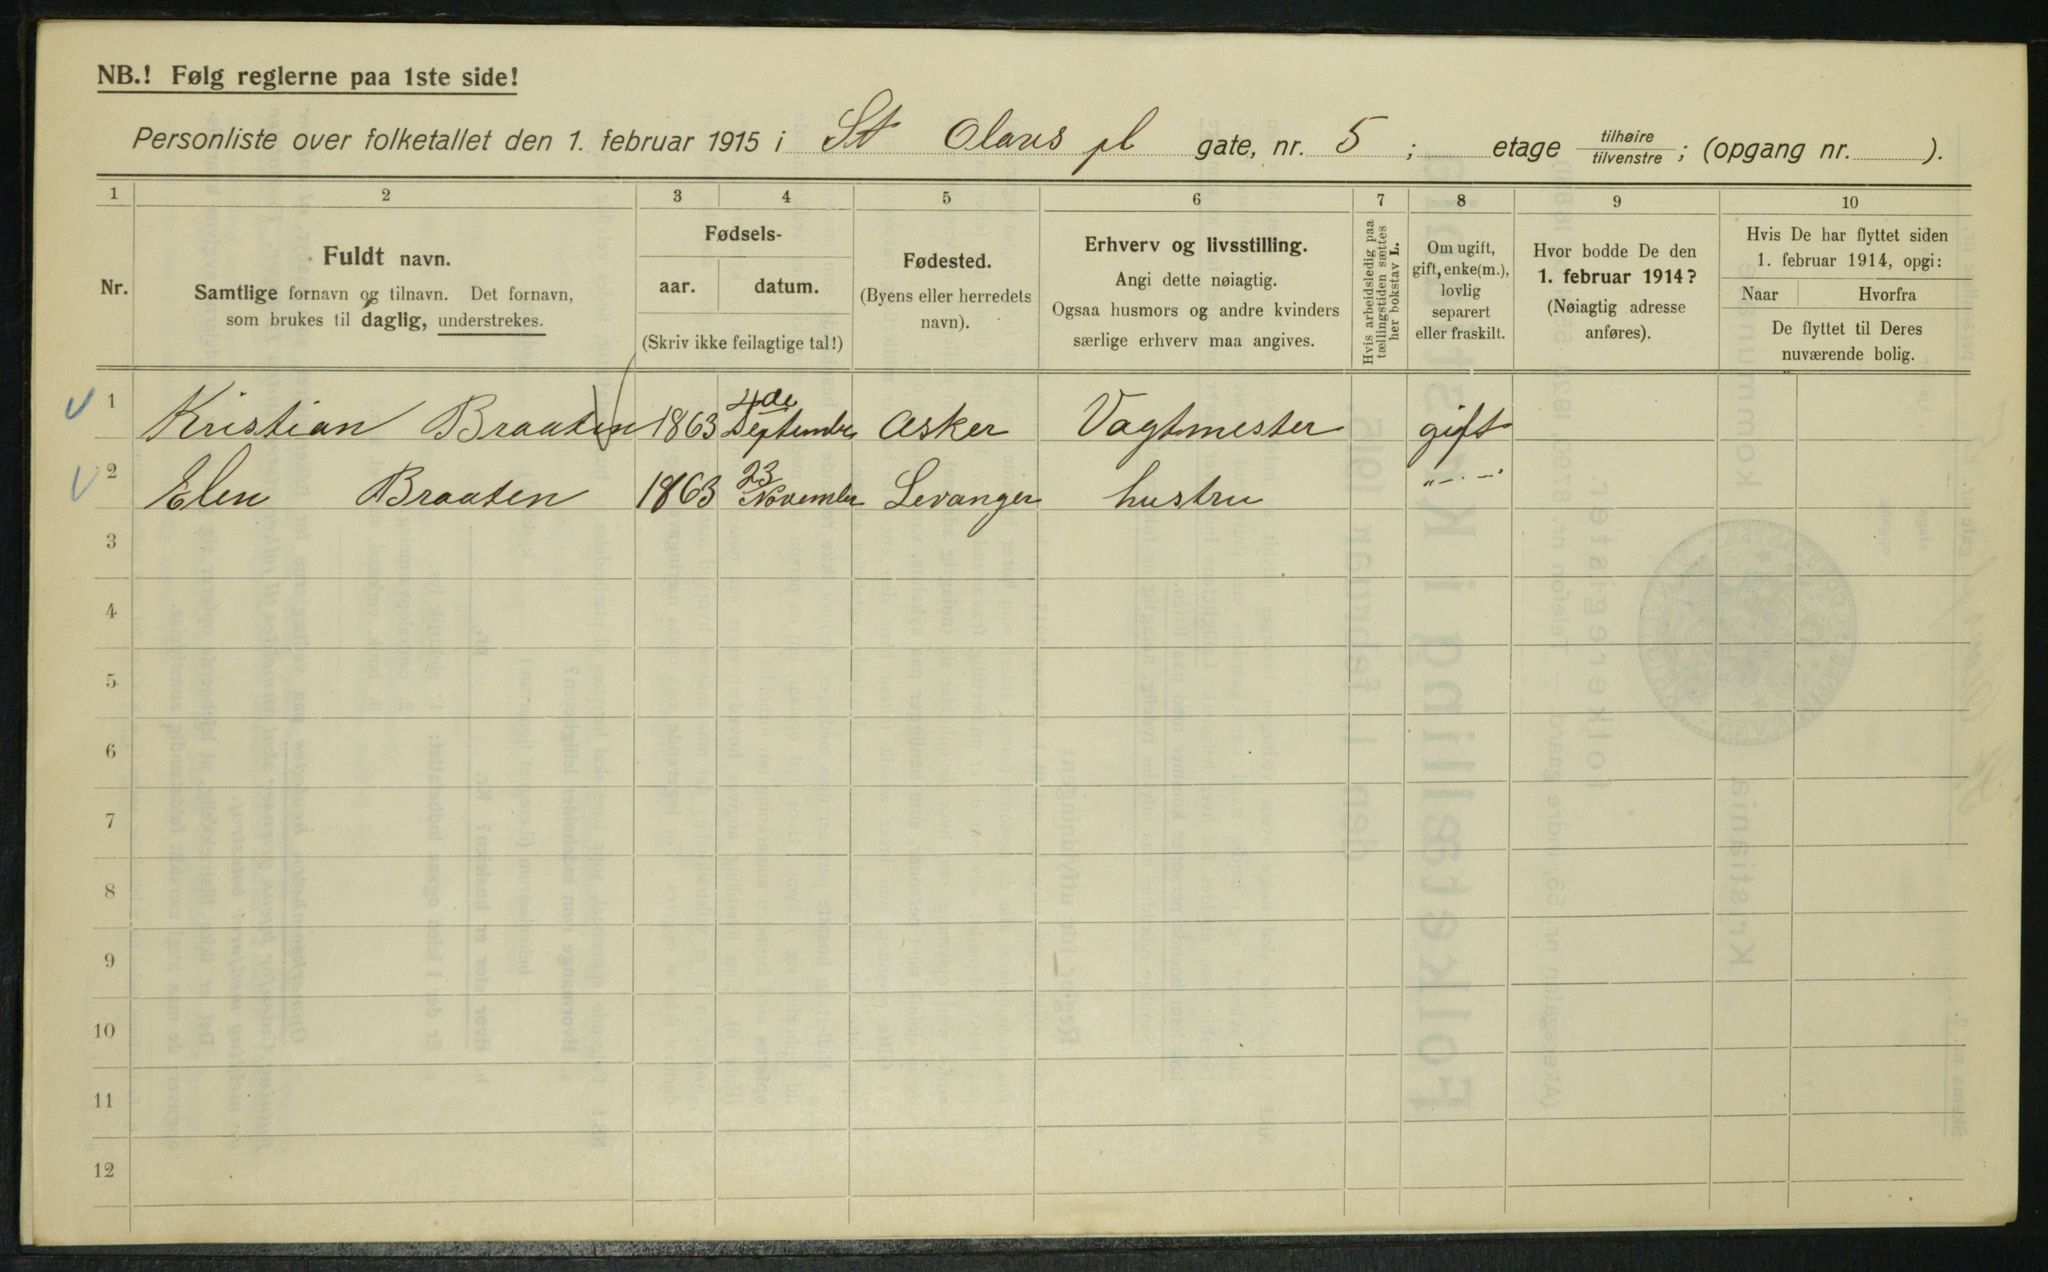 NB.! Følg reglerne paa 1ste side!
Personliste over folketallet den 1. februar 1915 i St Olavs pl gate, nr. 5 ; etage tilhøire tilvenstre ; (opgang nr. ).
1 2 3 4 5 6 7 8 9 10
Nr.
Fuldt navn.
Samtlige fornavn og tilnavn. Det fornavn,
som brukes til daglig, understrekes.
Fødsels-
aar. datum.
(Skriv ikke feilagtige tal!)
Fødested.
(Byens eller herredets
navn).
Erhverv og livsstilling.
Angi dette nøiagtig.
Ogsaa husmors og andre kvinders
særlige erhverv maa angives.
Hvis arbeidsledig paa
tællingstiden sættes
her bokstav L.
Om ugift,
gift, enke(m.),
lovlig
separert
eller fraskilt.
Hvor bodde De den
1. februar 1914?
(Nøiagtig adresse
anføres).
Hvis De har flyttet siden
1. februar 1914, opgi:
Naar Hvorfra
De flyttet til Deres
nuværende bolig.
1 Kristian Braaten 1863 4de September Asker Vagtmester gift
2 Elen Braaten 1863 23 November Levanger hustru "-.-.
3
4
5
6
7
8
9
10
11
12